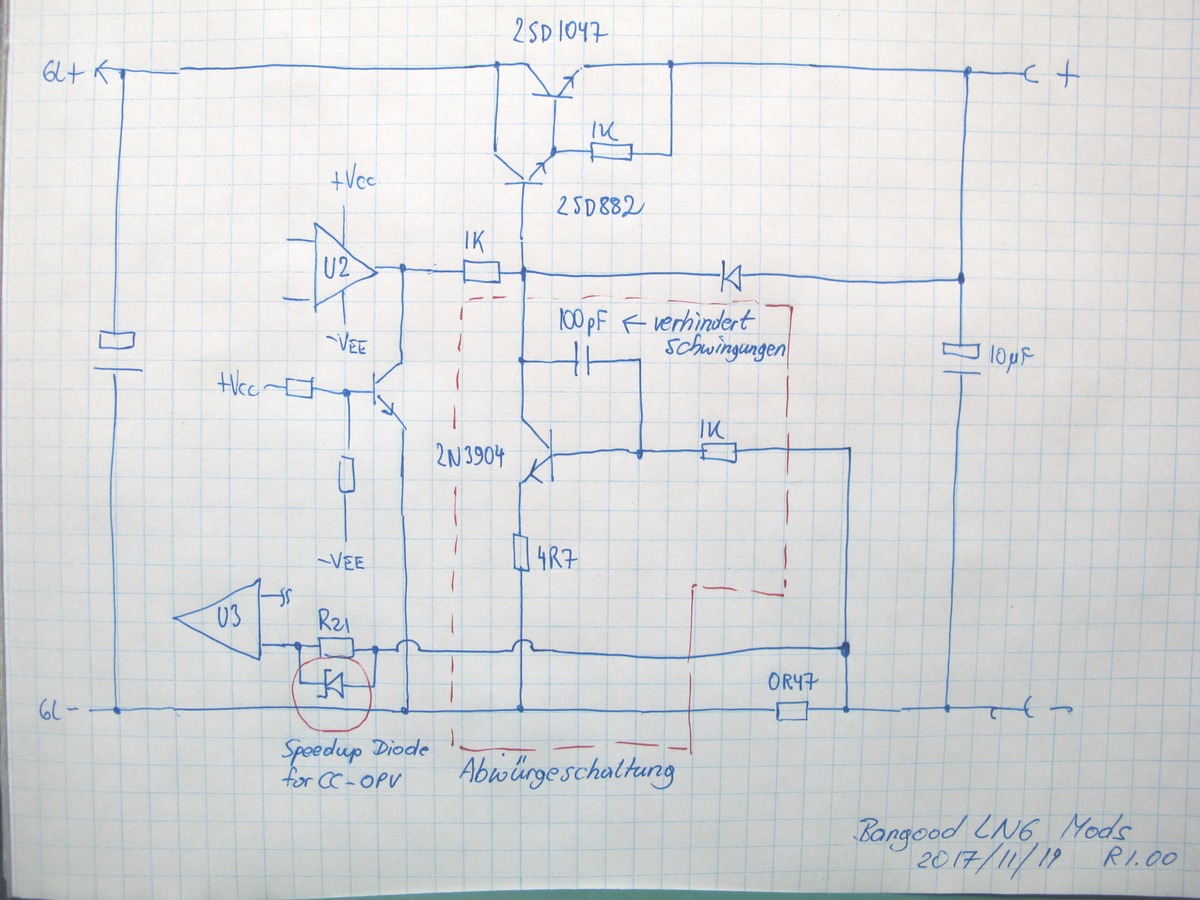 2SD1047
GL+
+
1K
+Vcc
2SD882
1K
U2
100pF ← verhindert
Schwingungen
-VEE
10µF
+Vcc
1K
2N3904
4R7
-VEE
U3
R21
0R47
GL-
-
Speedup Diode
for CC-OPV
Abwürgeschaltung
Bangood LNG Mods
2017/11/19 R1.00